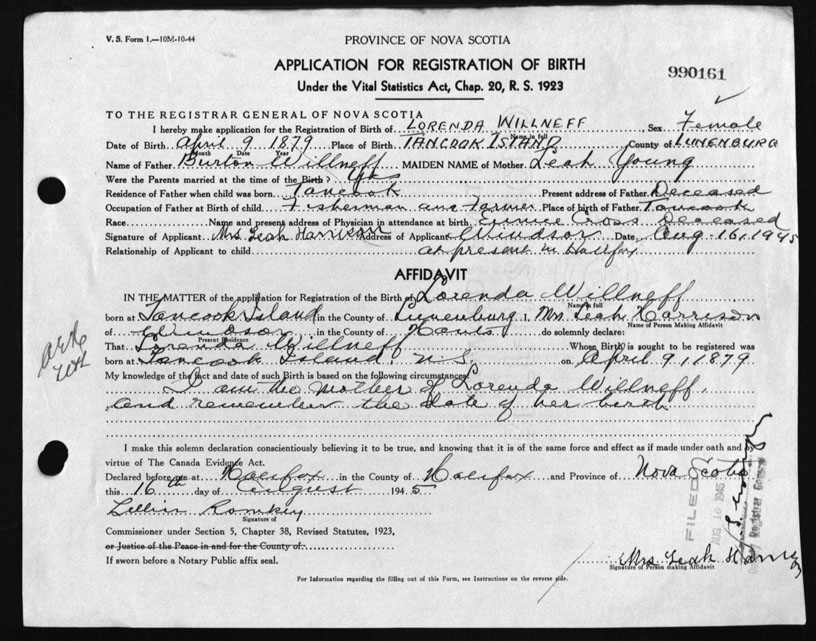 V. S. Form 1.—10M-10-44
PROVINCE OF NOVA SCOTIA
APPLICATION FOR REGISTRATION OF BIRTH
Under the Vital Statistics Act, Chap. 20, R. S. 1923
990161
TO THE REGISTRAR GENERAL OF NOVA SCOTIA
I hereby make application for the Registration of Birth of LORENDA WILLNEFF Sex Female
Name in full
Date of Birth April 9 1879 Place of Birth TANCOOK ISLAND County of LUNENBURG
Month Date Year
Name of Father Burton Willneff MAIDEN NAME of Mother Leah Young
Were the Parents married at the time of the Birth? Yes
Residence of Father when child was born Tancook Present address of Father Deceased
Occupation of Father at Birth of child Fisherman and Farmer Place of birth of Father Tancook
Race Name and present address of Physician in attendance at birth Eunice Cross Deceased
Signature of Applicant Mrs Leah Harrison Address of Applicant Windsor Date Aug. 16, 1945
Relationship of Applicant to child at present in Halifax
AFFIDAVIT
IN THE MATTER of the application for Registration of the Birth of Lorenda Willneff
Name in full
born at Tancook Island in the County of Lunenburg I, Mrs Leah Harrison
Name of Person Making Affidavit
of Windsor in the County of Hants do solemnly declare:
Present Residence
That Lorenda Willneff Whose Birth is sought to be registered was
born at Tancook Island, N.S. on April 9, 1879
My knowledge of the fact and date of such Birth is based on the following circumstances
I am the mother of Lorenda Willneff,
and remember the date of her birth.
I make this solemn declaration conscientiously believing it to be true, and knowing that it is of the same force and effect as if made under oath and by
virtue of The Canada Evidence Act.
Declared before me at Halifax in the County of Halifax and Province of Nova Scotia
this 16th day of August 1945
Lillian Romkey
Signature of
Commissioner under Section 5, Chapter 38, Revised Statutes, 1923,
or Justice of the Peace in and for the County of
If sworn before a Notary Public affix seal.
FILED
AUG 16 1945
Deputy Registrar General
Mrs Leah Harrison
Signature of Person making Affidavit
For Information regarding the filling out of this Form, see Instructions on the reverse side.